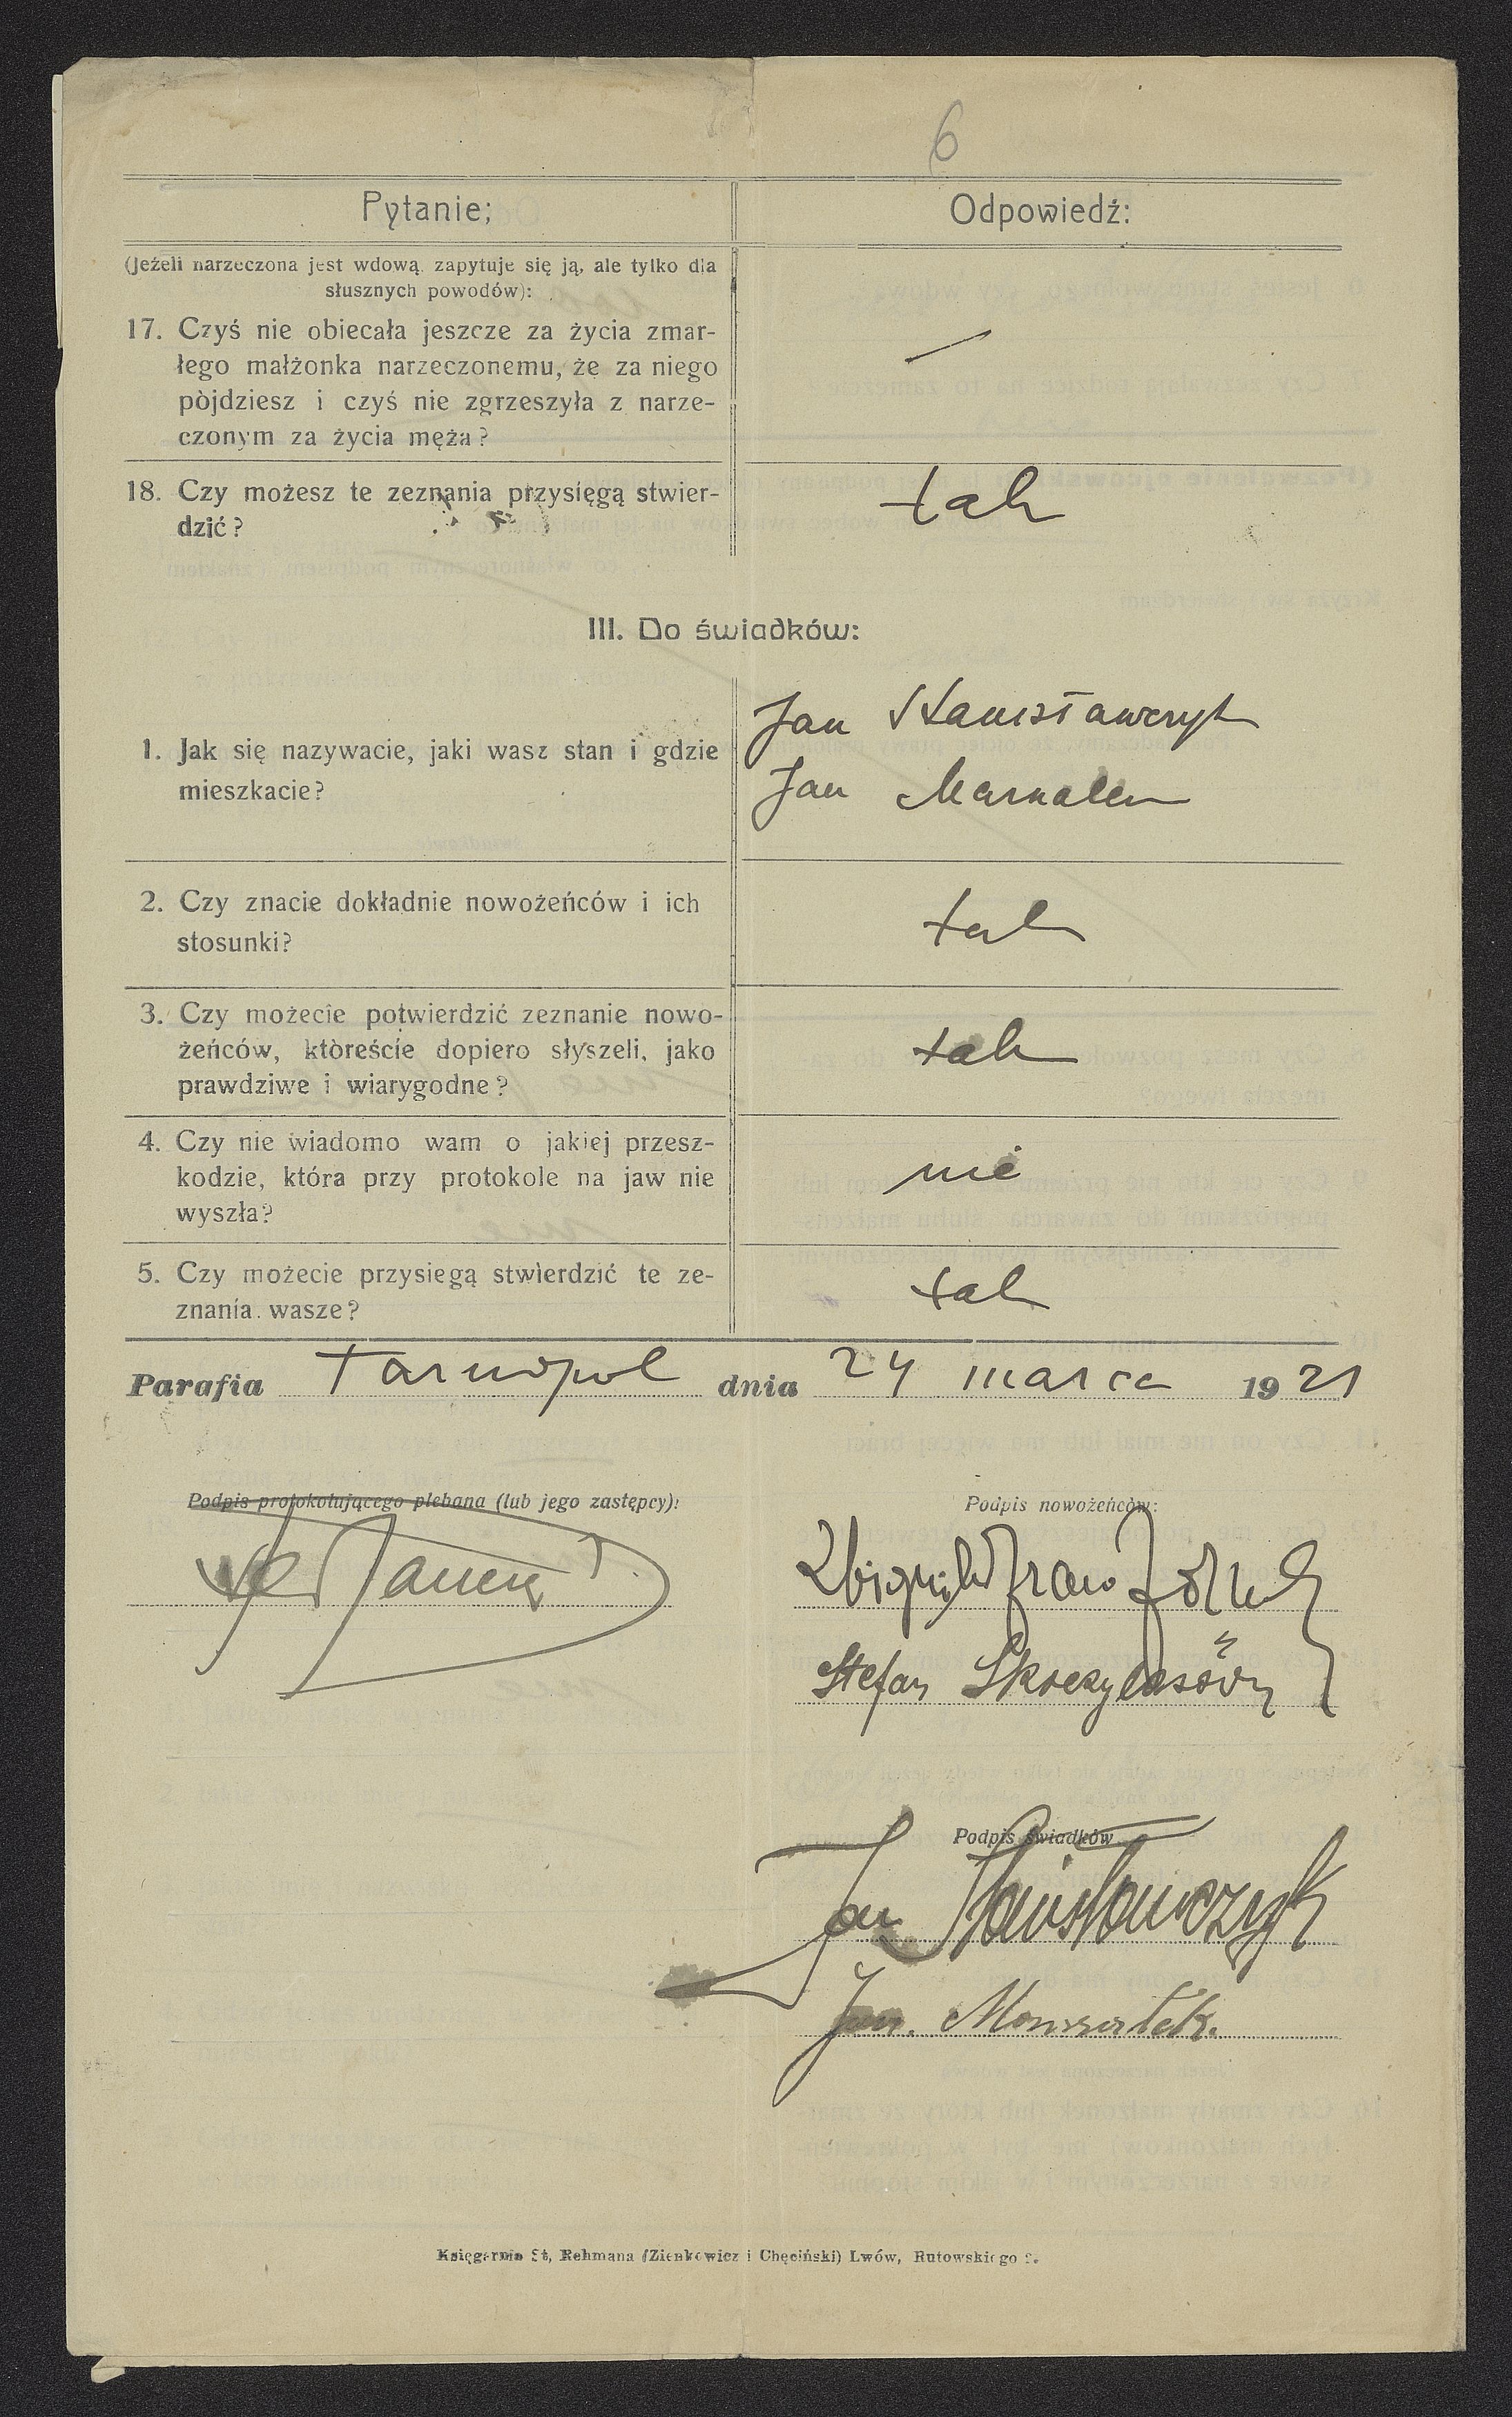 6
Pytanie;
Odpowiedź:
(Jeżeli narzeczona jest wdową, zapytuje się ją, ale tylko dla
słusznych powodów):
17. Czyś nie obiecała jeszcze za życia zmar-
łego małżonka narzeczonemu, że za niego
pòjdziesz i czyś nie zgrzeszyła z narze-
czonym za życia męża?
—
18. Czy możesz te zeznania przysięgą stwier-
dzić?
tak
III. Do świadków:
1. Jak się nazywacie, jaki wasz stan i gdzie
mieszkacie?
Jan Stanisławczyk
Jan
2. Czy znacie dokładnie nowożeńców i ich
stosunki?
tak
3. Czy możecie potwierdzić zeznanie nowo-
żeńców, któreście dopiero słyszeli, jako
prawdziwe i wiarygodne?
tak
4. Czy nie wiadomo wam o jakiej przesz-
kodzie, która przy protokole na jaw nie
wyszła?
nie
5. Czy możecie przysiegą stwierdzić te ze-
znania wasze?
tak
Parafia Tarnopol dnia 24 marca 1921
Podpis protokołującego plebana (lub jego zastępcy):
Podpis nowożeńców:
Podpis świadków
Jan Stanisławczyk
Jan.
Księgarnia St, Rehmana (Zienkowicz i Chęciński) Lwów, Rutowskiego